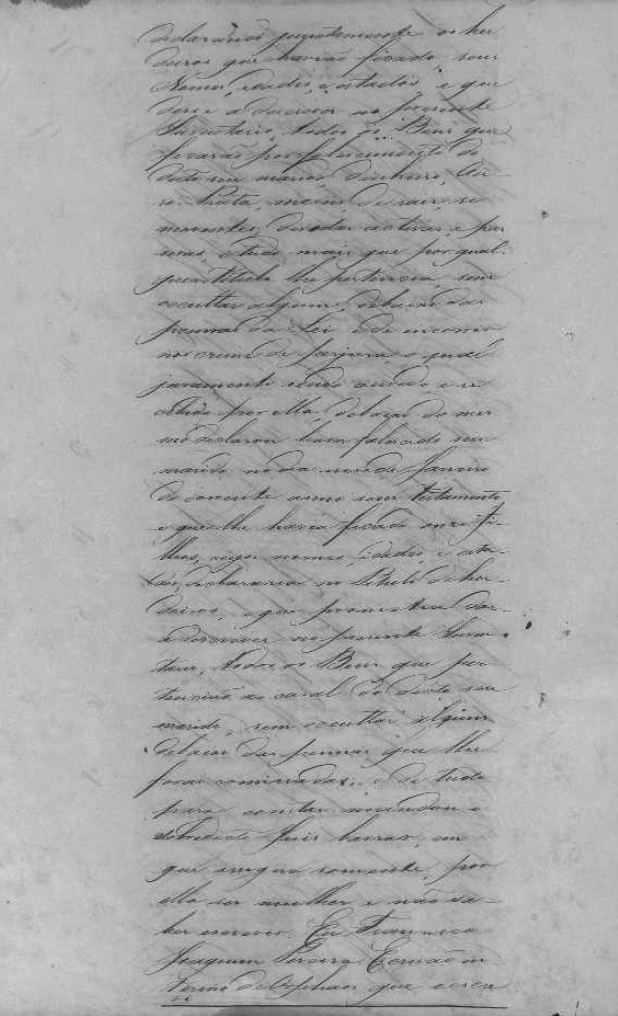 declarando juntamente os her
deiros que havião ficado, seus
Nomes, idades, e estados, e que
desse a descrever no presente
Inventario, todos os Bens que
ficarão por falescimento do
dito seu marido, dinheiro, Ou-
ro, Prata, moveis, de rais, se
moventes, dividas activas, e pas
sivas, e tudo mais que por qual-
quer titulo lhe pertencia, sem
occultar algum, debaixo das
pennas da Lei e de incorrer
no crime de perjura, o qual
juramento sendo aceito, e re
cebido por ella, debaixo do mes
mo declarou haver falecido seu
marido no dia nove de Janeiro
do corrente anno sem testamento
e que lhe havia ficado onze fi-
lhos, cujos nomes, idades, e esta-
dos, declararia no Titulo de her-
deiros, e que promettia dar
a descrever no presente Inven
tario, todos os Bens que per
tencião ao casal do dito seu
marido, sem occultar algum
debaixo das pennas que lhe
forão cominadas; e de tudo
para constar mandou o
sobredito Juis lavrar, em
que assigna somente, por
ella ser mulher e não sa-
ber escrever. Eu Francisco
Joaquim Pereira Escrivão in-
terino de Orphaos, que escrevi